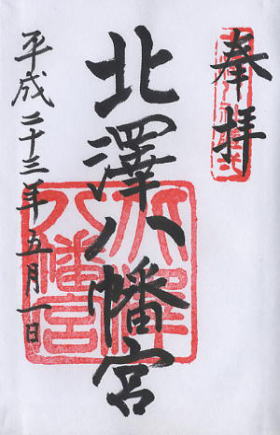 奉拝
北澤八幡宮
北澤八幡宮
平成二十三年五月一日